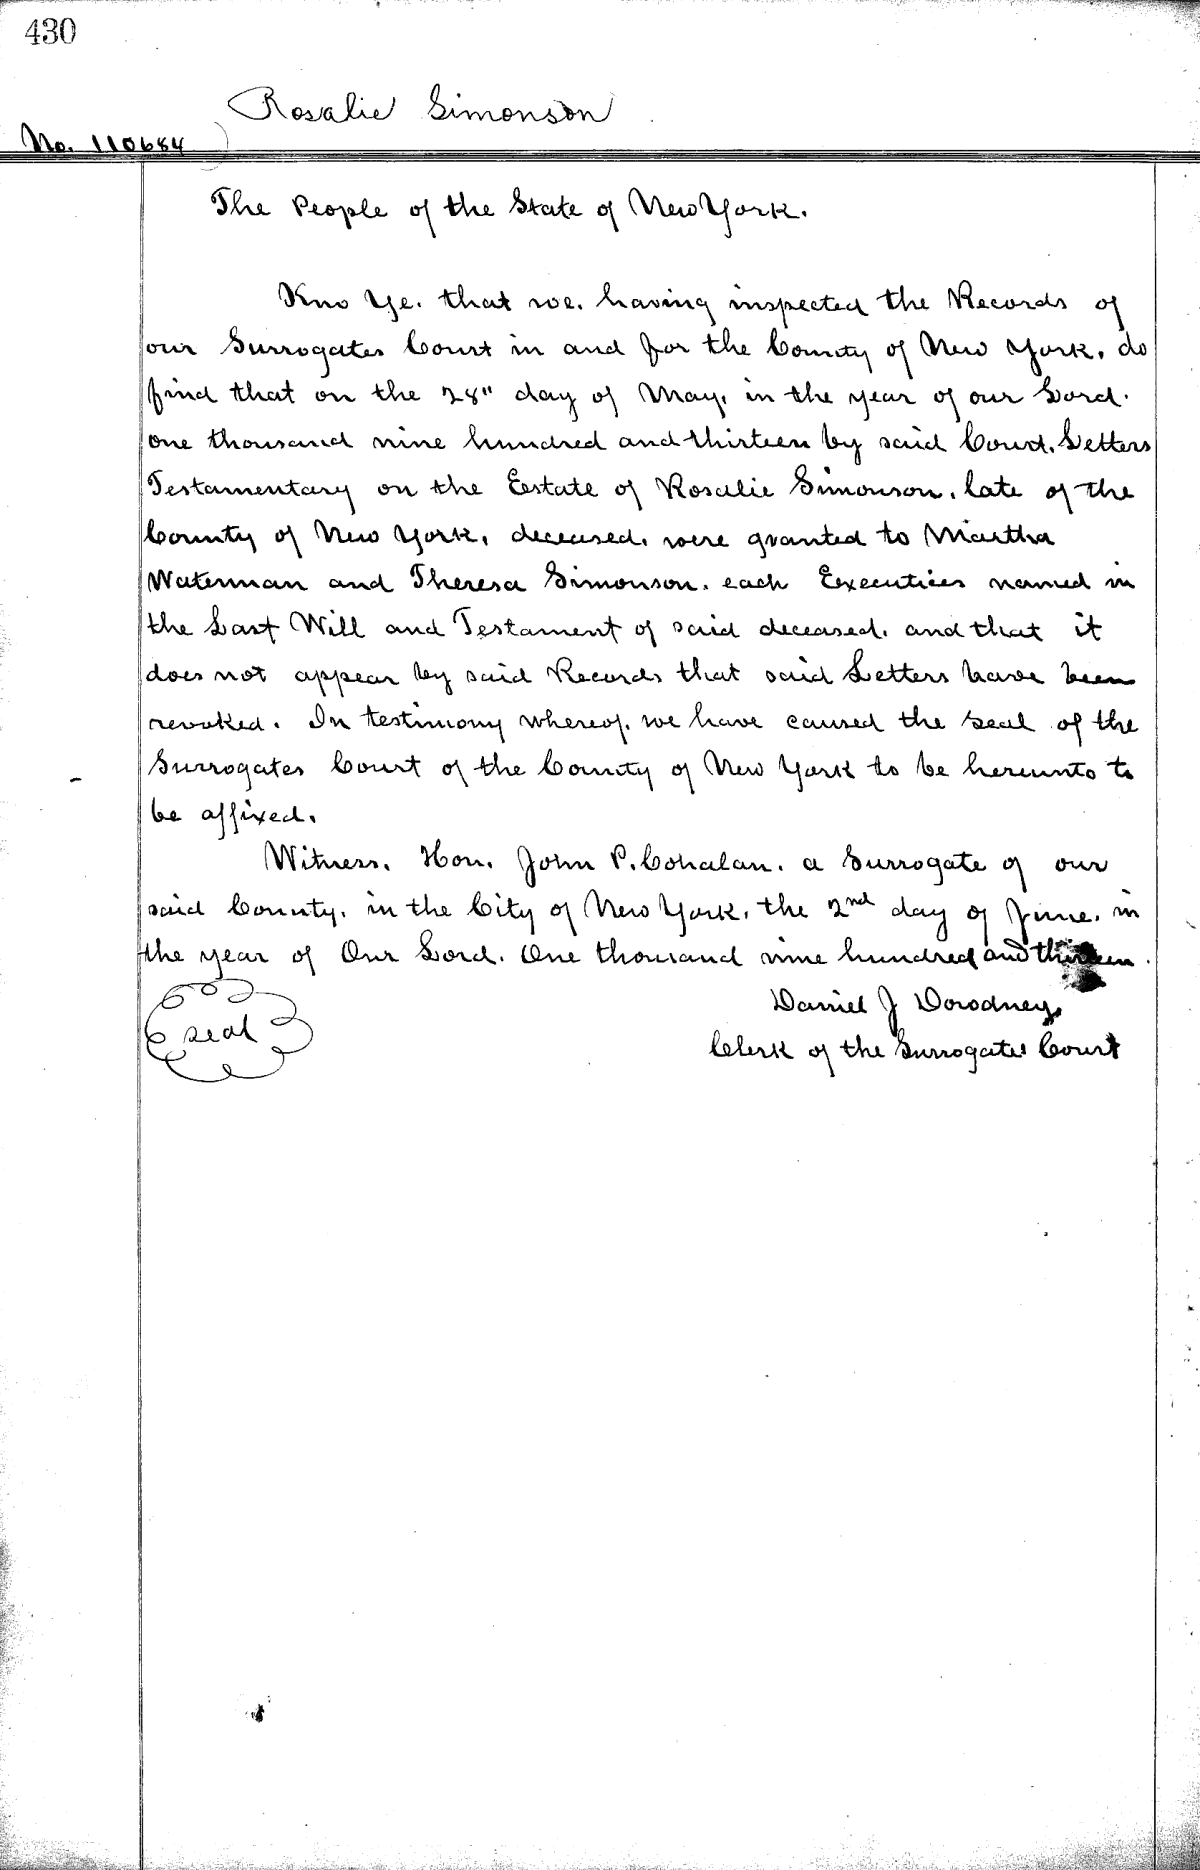 430
Rosalie Simonson
No. 110684
The People of the State of New York.
Kno Ye. that we. having inspected the Records of
our Surrogates Court in and for the County of New York, do
find that on the 28" day of May, in the year of our Lord.
one thousand nine hundred and thirteen by said Court, Letters
Testamentary on the Estate of Rosalie Simonson, late of the
County of New York, deceased, were granted to Martha
Waterman and Theresa Simonson. each Executrices named in
the Last Will and Testament of said deceased, and that it
does not appear by said Records that said Letters have been
revoked. In testimony whereof, we have caused the seal of the
Surrogates Court of the County of New York to be hereunto to
be affixed.
Witness, Hon. John P. Cohalan, a Surrogate of our
said County, in the City of New York, the 2nd day of June, in
the year of Our Lord. One thousand nine hundred and thirteen.
seal
Daniel J Dowdney,
Clerk of the Surrogates Court